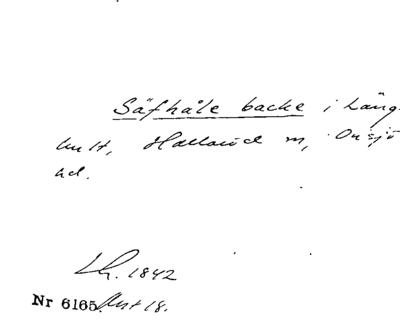 Säfhåle backe i Läng-
hult, Halland m, Onsjö
hd.
Lh. 1842
Nr 6165. Art 18.